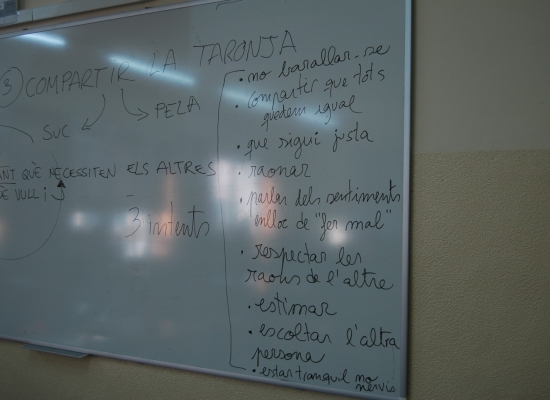 3 COMPARTIR LA TARONJA
SUC
PELA
QUÈ NECESSITEN ELS ALTRES
VULL i
3 intents
• no barallar-se
• compartir que tots
quedem igual
• que sigui justa
• raonar
• parlar dels sentiments
enlloc de "fer mal"
• respectar les
raons de l'altre
• estimar
• escoltar l'altra
persona
• estar tranquil no
nervis